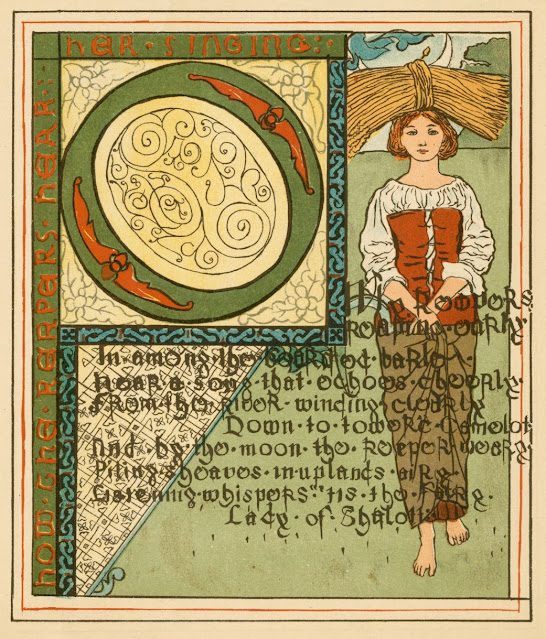 how · the · reapers · hear · : ·
her · singing : ·
Only · reapers,
reaping · early ·
In · among · the · bearded · barley ·
Hear · a · song · that · echoes · cheerly ·
From · the · river · winding · clearly
Down · to · towered · Camelot
And · by · the · moon · the · reaper · weary,
Piling · sheaves · in · uplands · airy ·
Listening · whispers "'tis · the · fairy ·
Lady · of · Shalott"